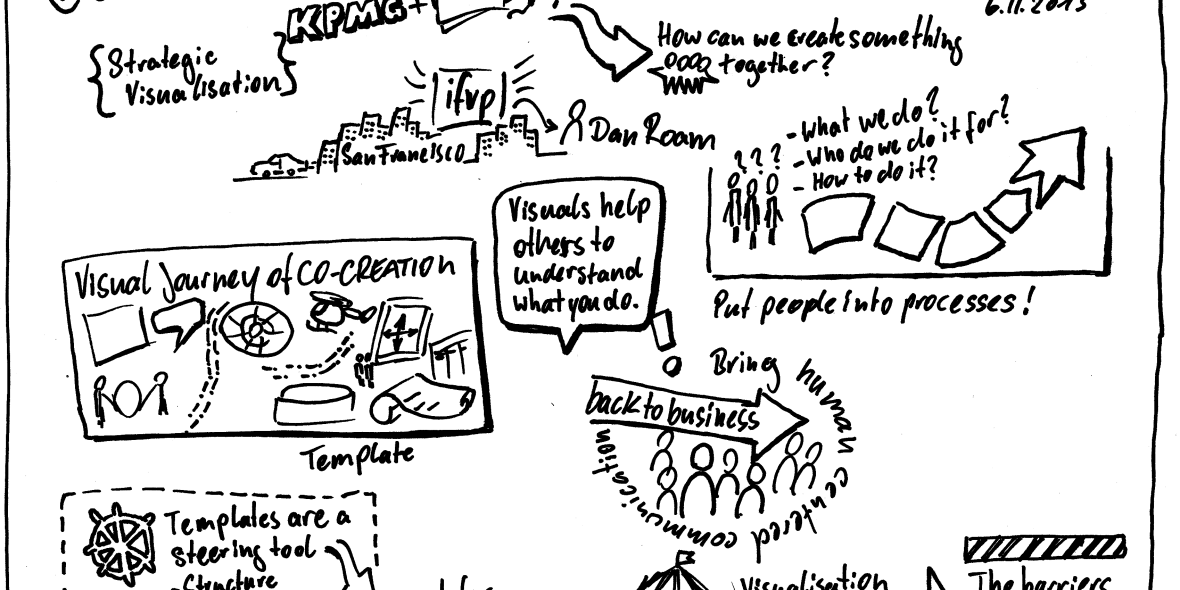 KPMG+
6.11.2013
Strategic
Visualisation
How can we create something
together?
ifvp
San Francisco
Dan Roam
???
- What we do?
- Who do we do it for?
- How to do it?
Put people into processes!
Visuals help
others to
understand
what you do.
Visual Journey of CO-CREATION
Template
Bring human centered communication
back to business
Templates are a
steering tool
- Structure
Visualisation
The barriers